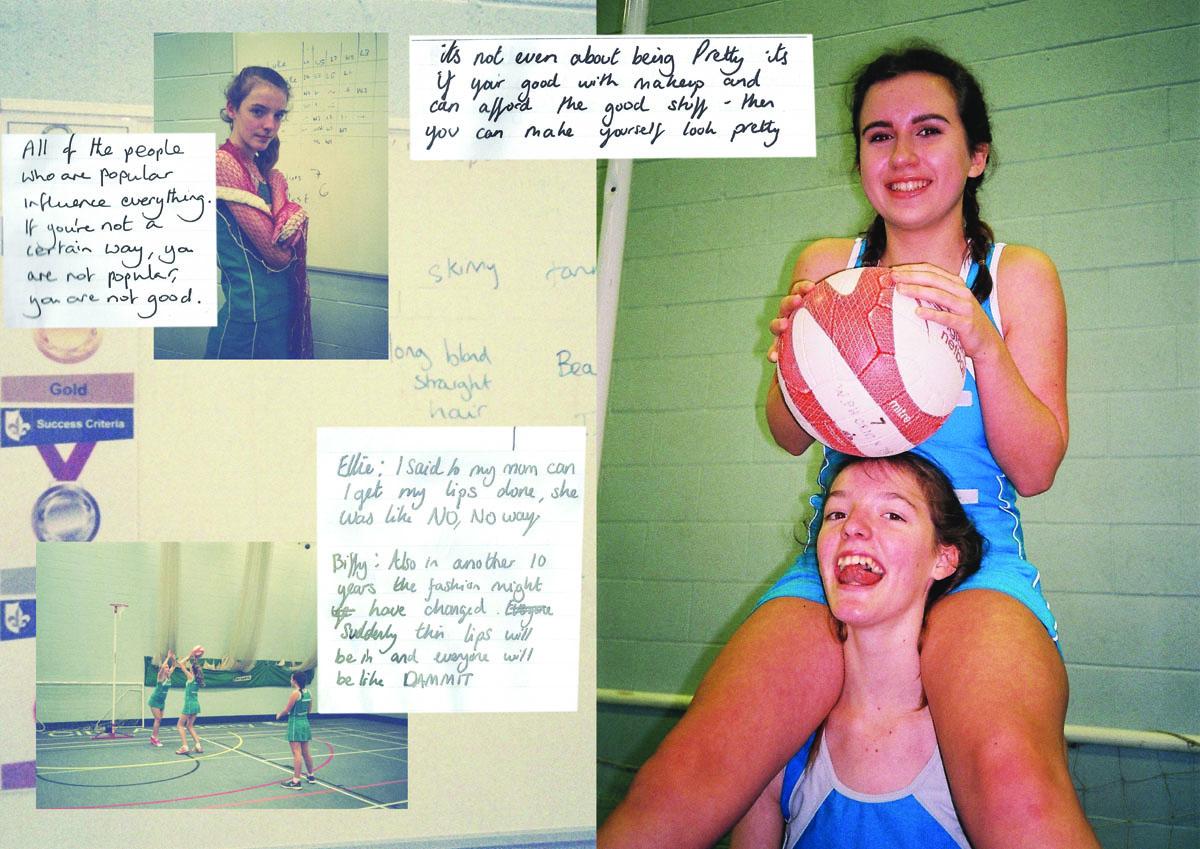 its not even about being Pretty its
if your good with makeup and
can afford the good stuff - then
you can make yourself look pretty
All of the people
who are popular
influence everything.
If you're not a
certain way, you
are not popular,
you are not good.
skinny
long blond
straight
hair
Gold
Success Criteria
Ellie: I said to my mum can
I get my lips done, she
was like NO, NO way.
Biffy: Also in another 10
years the fashion might
have changed.
Suddenly thin lips will
be in and everyone will
be like DAMMIT
mitre
7